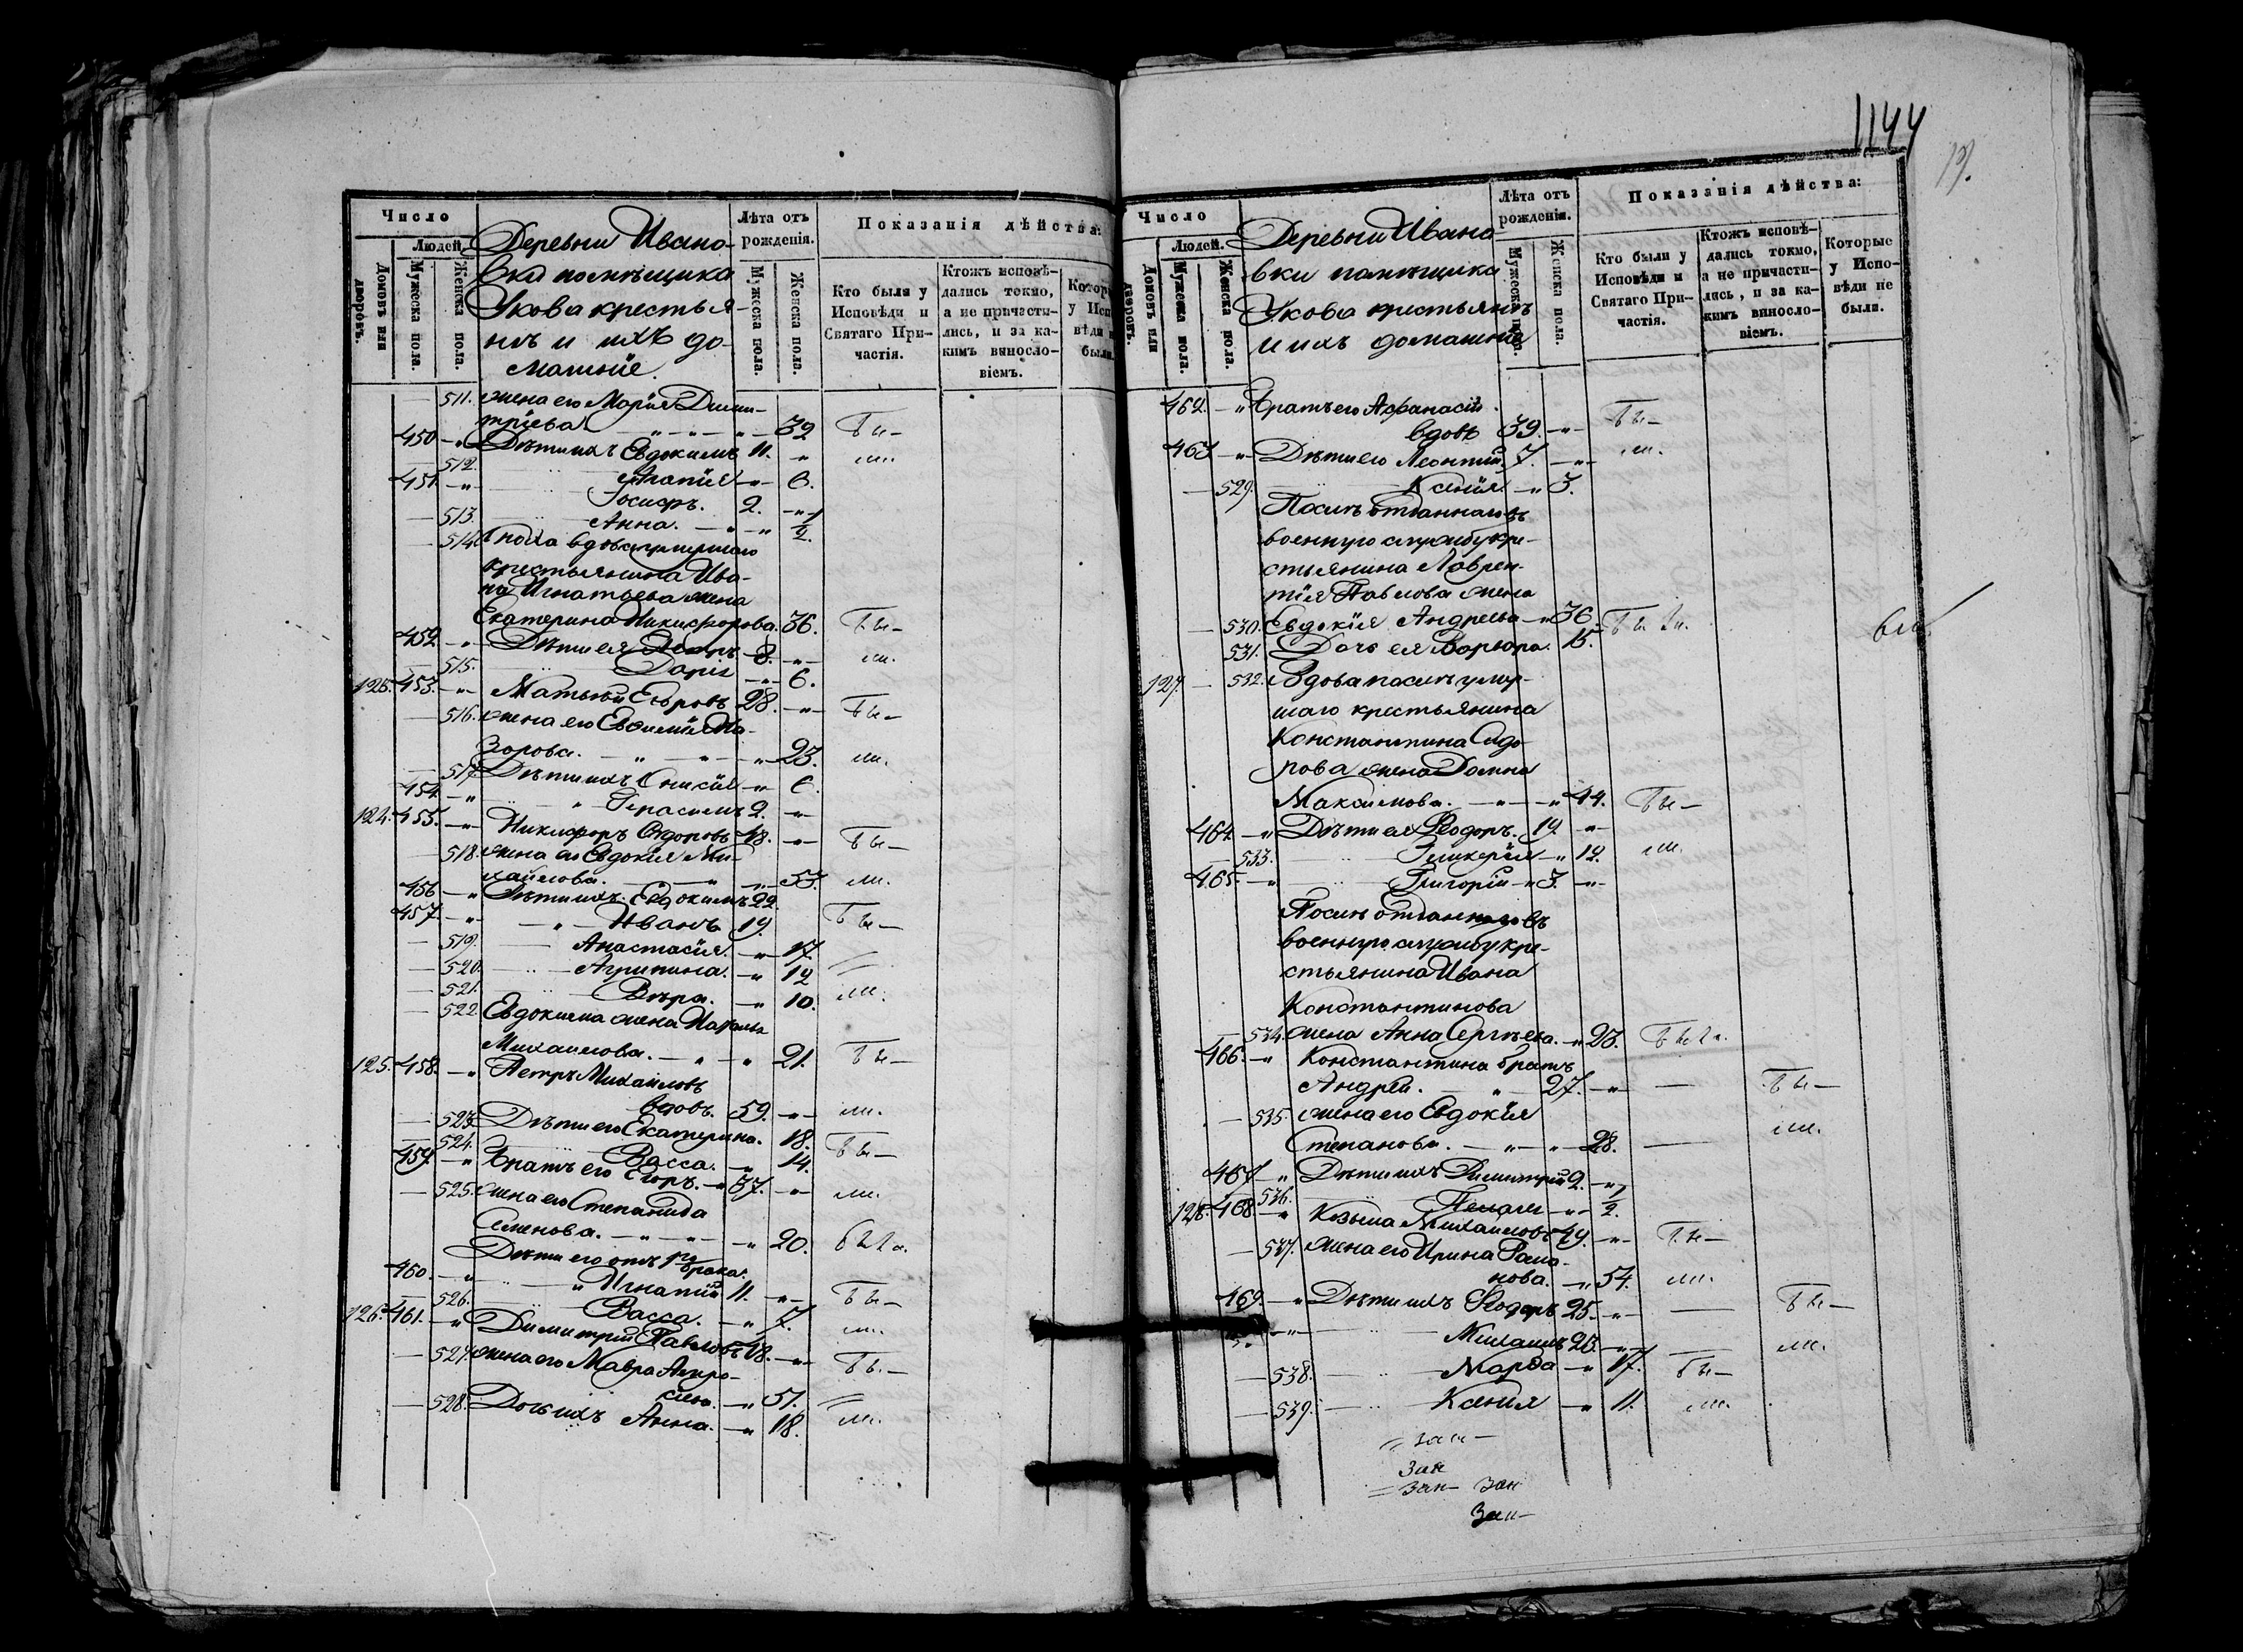 1144
19.
Число
Людей.
Домовъ или дворовъ.
Мужеска пола.
Женска пола.
Деревни Ивано-
вки помѣщика
Укова крестья-
нъ и ихъ до-
машніе.
Лѣта отъ рожденія.
Мужеска пола.
Женска пола.
Показанія дѣйства:
Кто были у Исповѣди и Святаго Причастія.
Ктожъ исповѣдались токмо, а не причастились, и за какимъ винословіемъ.
511. жена его Марія Дими-
тріева 32 бы-
450 Дѣти ихъ Евдокимъ 11. ли.
512. Агапія 6.
451 Іосифъ. 2.
513. Анна. 1/2.
514. вдова умершаго
крестьянина Ива-
на Игнатьева жена
Екатерина Никифорова. 36. бы-
452 Дѣти ея 8. ли.
515. 6.
123. 453. Матвѣй Егоровъ 28. бы-
516. жена его Евфимія
23. ли.
517 Дѣти ихъ 6.
454 Герасимъ 2.
124. 455. Никифоръ 48. бы-
518. жена его Евдокія Ми-
хайлова. 53. ли.
456 Дѣти ихъ. Евдокимъ 22
457 Иванъ 19 бы-
519. Анастасія. 17.
520. Агрипина. 12
521. Вѣра. 10. ли.
522 Евдокима жена Наталья
Михайлова. 21. бы-
125. 458. Петръ Михайловъ
вдовъ. 59. ли.
523. Дѣти его Екатерина. 18. бы-
524. Васса. 14.
459. Братъ его Егоръ. 37. ли.
525. жена его Степанида
Семенова. 20. были.
Дѣти его отъ 1го брака:
460. Игнатій 11. бы-
526. Васса. 7. ли.
126. 461. Димитрій Павловъ 48. бы-
527. жена его Мавра Амвро-
сіева. 51.
528. Дочь ихъ Анна. 18. ли.
Число
Людей.
Домовъ или дворовъ.
Мужеска пола.
Женска пола.
Деревни Ивано
вки помѣщика
Укова крестьянъ
и ихъ домашніе
Лѣта отъ рожденія.
Мужеска пола.
Женска пола.
Показанія дѣйства:
Кто были у Исповѣди и Святаго Причастія.
Ктожъ исповѣдались токмо, а не причастились, и за какимъ винословіемъ.
Которые у Исповѣди не были.
462. Братъ его Афанасій
вдовъ 39. бы-
463 Дѣти его Леонтій. 7. ли.
529. Ксенія 3.
Посемъ отданнаго въ
военную службу кре-
стьянина Лаврен-
тія Павлова жена
530. Евдокія Андреева 36. были.
531. Дочь ея Варвара. 15.
127. 532. Вдова посемъ умер-
шаго крестьянина
Константина Сидо-
рова жена Домна
Максимова. 44. бы-
464 Дѣти ея Ѳеодоръ. 19
533. Гликерія 12. ли.
465. Григорій 3.
Посемъ отданнаго въ
военную службу кре-
стьянина Ивана
Константинова
534. жена Анна Сергѣева. 23. были.
466. Константина братъ
Андрей. 27. бы-
535. жена его Евдокія
Степанова. 28. ли.
467 Дѣти ихъ Димитрій 2.
536. Пелагея 1/2.
128. 468 Козьма Михайловъ 49. бы-
537. жена его Ирина Рома-
нова. 54. ли.
469. Дѣти ихъ Ѳеодоръ 25. бы-
Михаилъ 20. ли.
538. Марѳа 17. бы-
539. Ксенія 11. ли.
зап-
Зап
зап- зап
Зап-